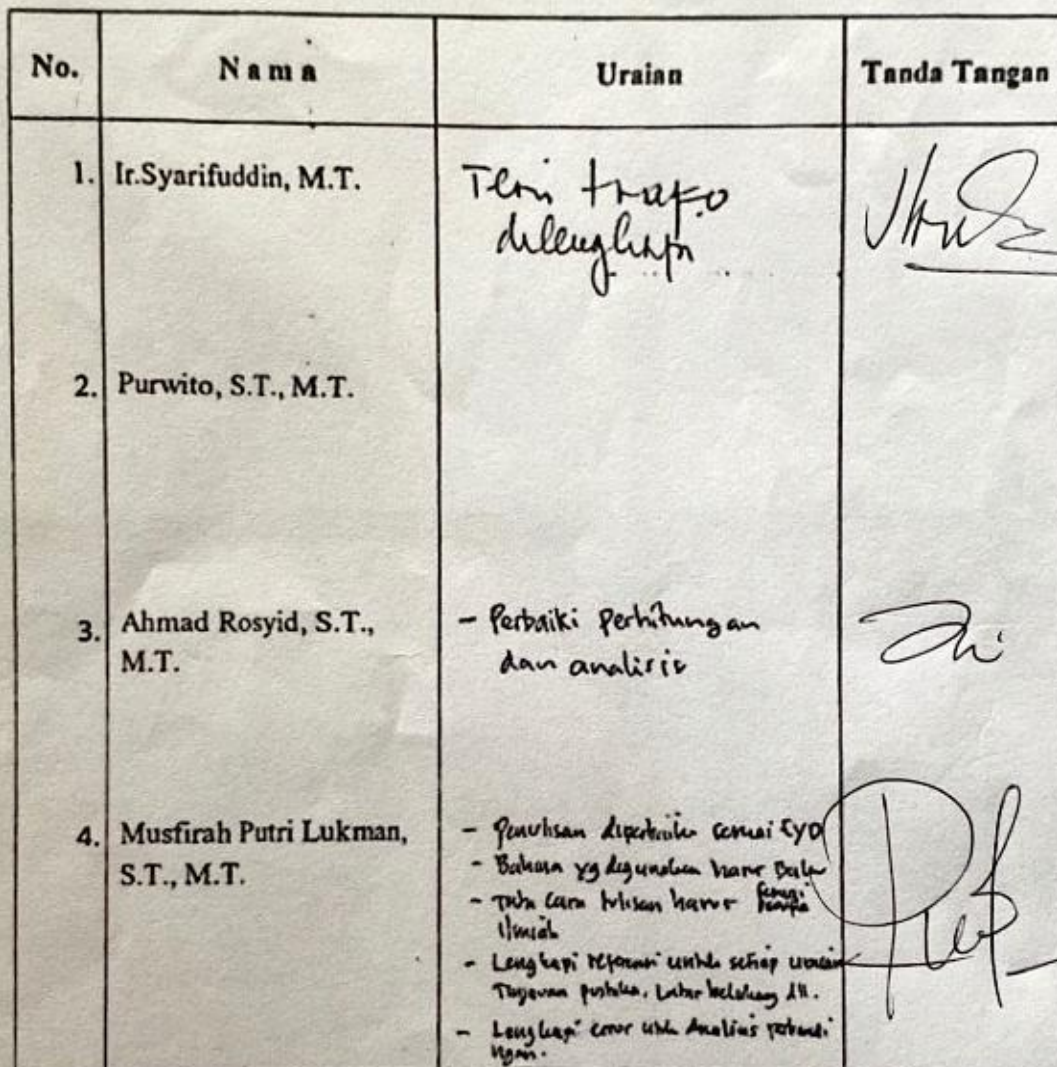 No.
Nama
Uraian
Tanda Tangan
1.
Ir.Syarifuddin, M.T.
Teori trafo
dilengkapi
2.
Purwito, S.T., M.T.
3.
Ahmad Rosyid, S.T.,
M.T.
- Perbaiki perhitungan
dan analisis
4.
Musfirah Putri Lukman,
S.T., M.T.
- Penulisan diperbaiki sesuai EYD
- Bahasa yg digunakan harus Baku
- Tata cara tulisan harus
Ilmiah
- Lengkapi referensi untuk setiap uraian
Tinjauan pustaka, Latar belakang dll.
- Lengkapi error utk Analisis perbandi
ngan.